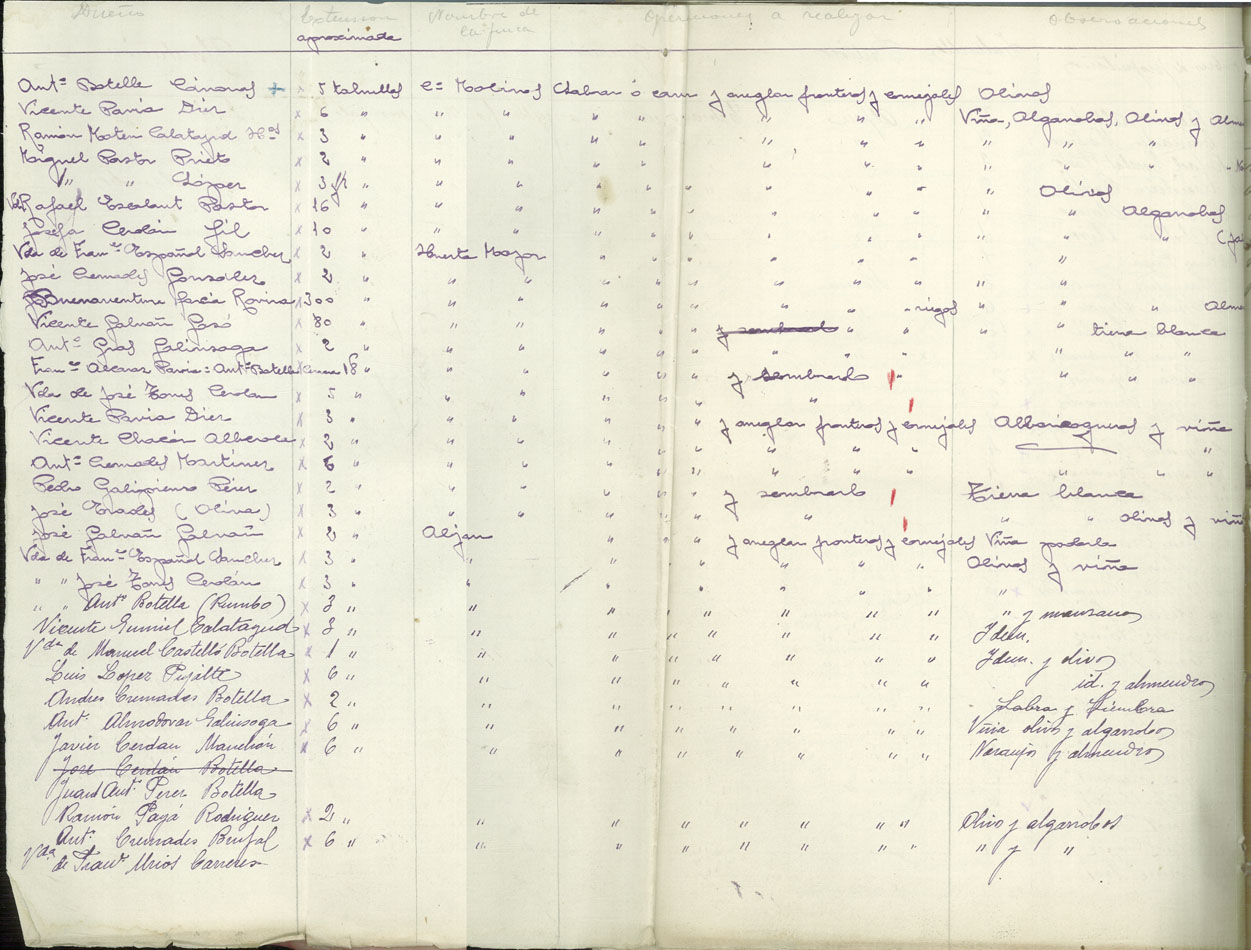 Dueño Extension aproximada Nombre de la finca Operaciones a realizar Observaciones
Antº Botella Cánovas + 5 tahullas Cº Molinos Labrar ó cavar y arreglar fronteras y cornejales Olivos
Vicente Pavia Dier x 6 " " " " " " " " Viña, Algarrobos, Olivos y Alme
Ramón Calatayud x 3 " " " " " " " " " " "
Miguel Pastor Prieto x 2 " " " " " " " " " " "
" " López x 3 " " " " " " " " " Olivos
Vda Rafael Escolant Pastor x 16 " " " " " " " " " " Algarrobos
Josefa Cerdán Gil x 10 " " " " " " " " " " "
Vda de Franº Español Sanchez x 2 " Huerta Mayor " " " " " " "
José Cremades Gonzalez x 2 " " " " " " " " " " "
Buenaventura Garcia Rovira x 300 " " " " " " " " riegos " " " Alme
Vicente Galvañ x 80 " " " " " " y sembrarlo " " " tierra blanca
Antº Gras Galinsoga x 2 " " " " " " " " " " " "
Franº Alcaraz Pavia: Antº Botella x 18 " " " " " " y sembrarlo " " "
Vda de José Torres Cerdan x 5 " " " " " " "
Vicente Pavia Dier x 3 " " " " " " y arreglar fronteras y cornejales Albaricoqueros y viña
Vicente Chacón Alberola x 2 " " " " " " " " " "
Antº Cremades Martinez x 6 " " " " " " " " " " "
Pedro Galipienso Pérez x 2 " " " " " " y sembrarlo Tierra blanca
José Prades (Oliva) x 3 " " " " " " " " Olivos y viña
José Galvañ Galvañ x 2 " Aljau " " " y arreglar fronteras y cornejales Viña podarla
Vda de Franº Español Sanchez x 3 " " " " " " " " Olivos y viña
" " José Torres Cerdan x 3 " " " " " " " " "
" " Antº Botella (Rumbo) x 3 " " " " " " " " " y manzanos
Vicente Gumiel Calatayud x 3 " " " " " " " " Idem.
Vda de Manuel Castelló Botella x 1 " " " " " " " " Idem. y olivos
Luis Lopez Pujalte x 6 " " " " " " " " id. y almendros
Andres Cremades Botella x 2 " " " " " " " " Labra y Siembra
Antº Almodovar Galinsoga x 6 " " " " " " " " Viña olivos y algarrobos
Javier Cerdan Manchón x 6 " " " " " " " " Naranjos y almendros
José Cerdán Botella
Juan Antº Perez Botella
Ramón Payá Rodriguez x 2 " " " " " " " " Olivo y algarrobos
Antº Cremades Brufal x 6 " " " " " " " " " y "
Vda de Franº Mrios Carreres